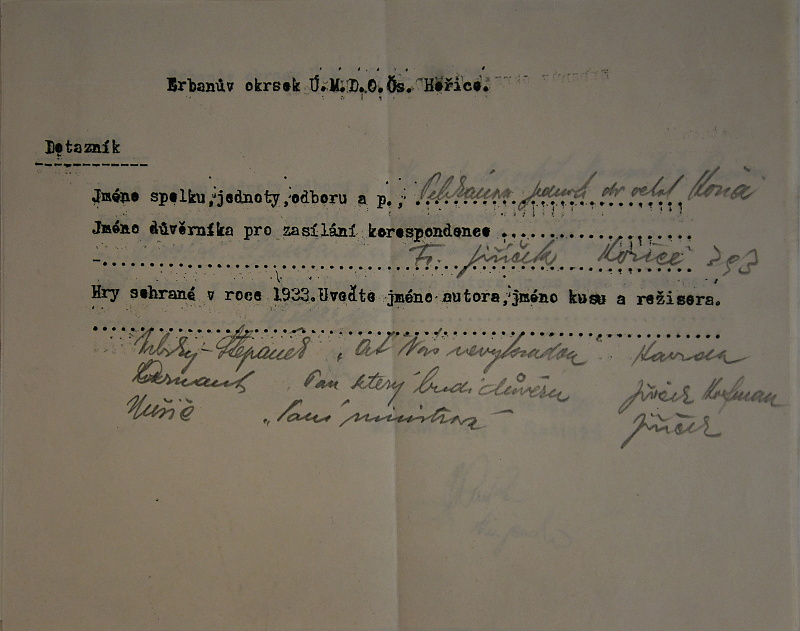 Erbanův okrsek Ú.M.D.O.Čs. Hořice.
Dotazník
Jméno spolku, jednoty, odboru a p.,
Jméno důvěrníka pro zasílání korespondence
Fr. Jiříček Hořice
Hry sehrané v roce 1933. Uveďte jméno autora, jméno kusu a režisera.
Štěpánek „Ať Vás nevyhradou" Havrda
Pan který budí důvěru Jiříček Hofman
Nušič „Paní ministrová" Jiříček